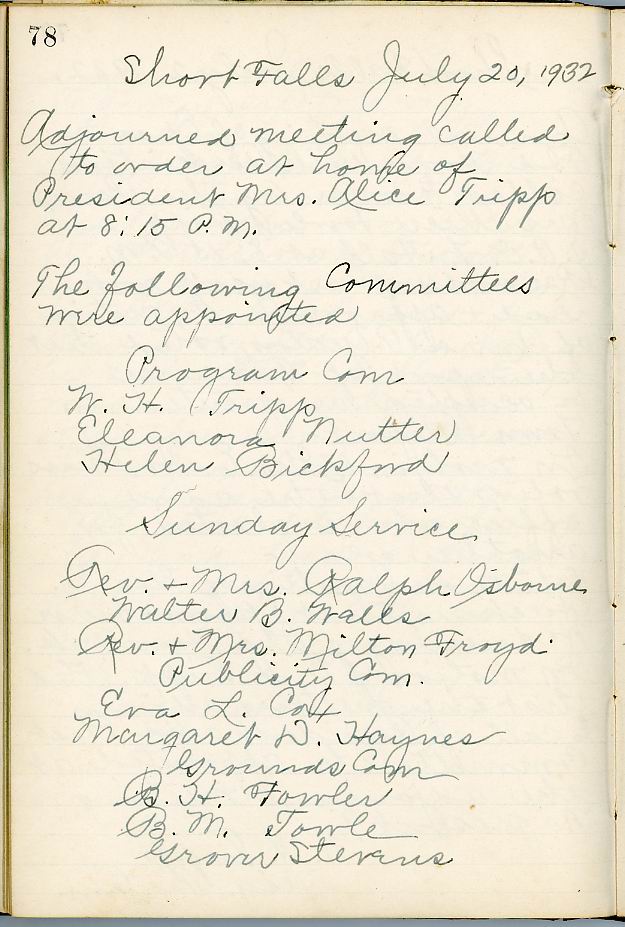 78
Short Falls July 20, 1932
Adjourned meeting called
to order at home of
President Mrs. Alice Tripp
at 8:15 P.M.
The following Committees
were appointed
Program Com
W. H. Tripp
Eleanora Nutter
Helen Bickford
Sunday Service
Rev. + Mrs. Ralph Osborne
Walter B. Wells
Rev. + Mrs. Milton Froyd.
Publicity Com.
Eva L. Cox
Margaret D. Haynes
Grounds Com
B. H. Fowler
B. M. Towle
Grover Stevens